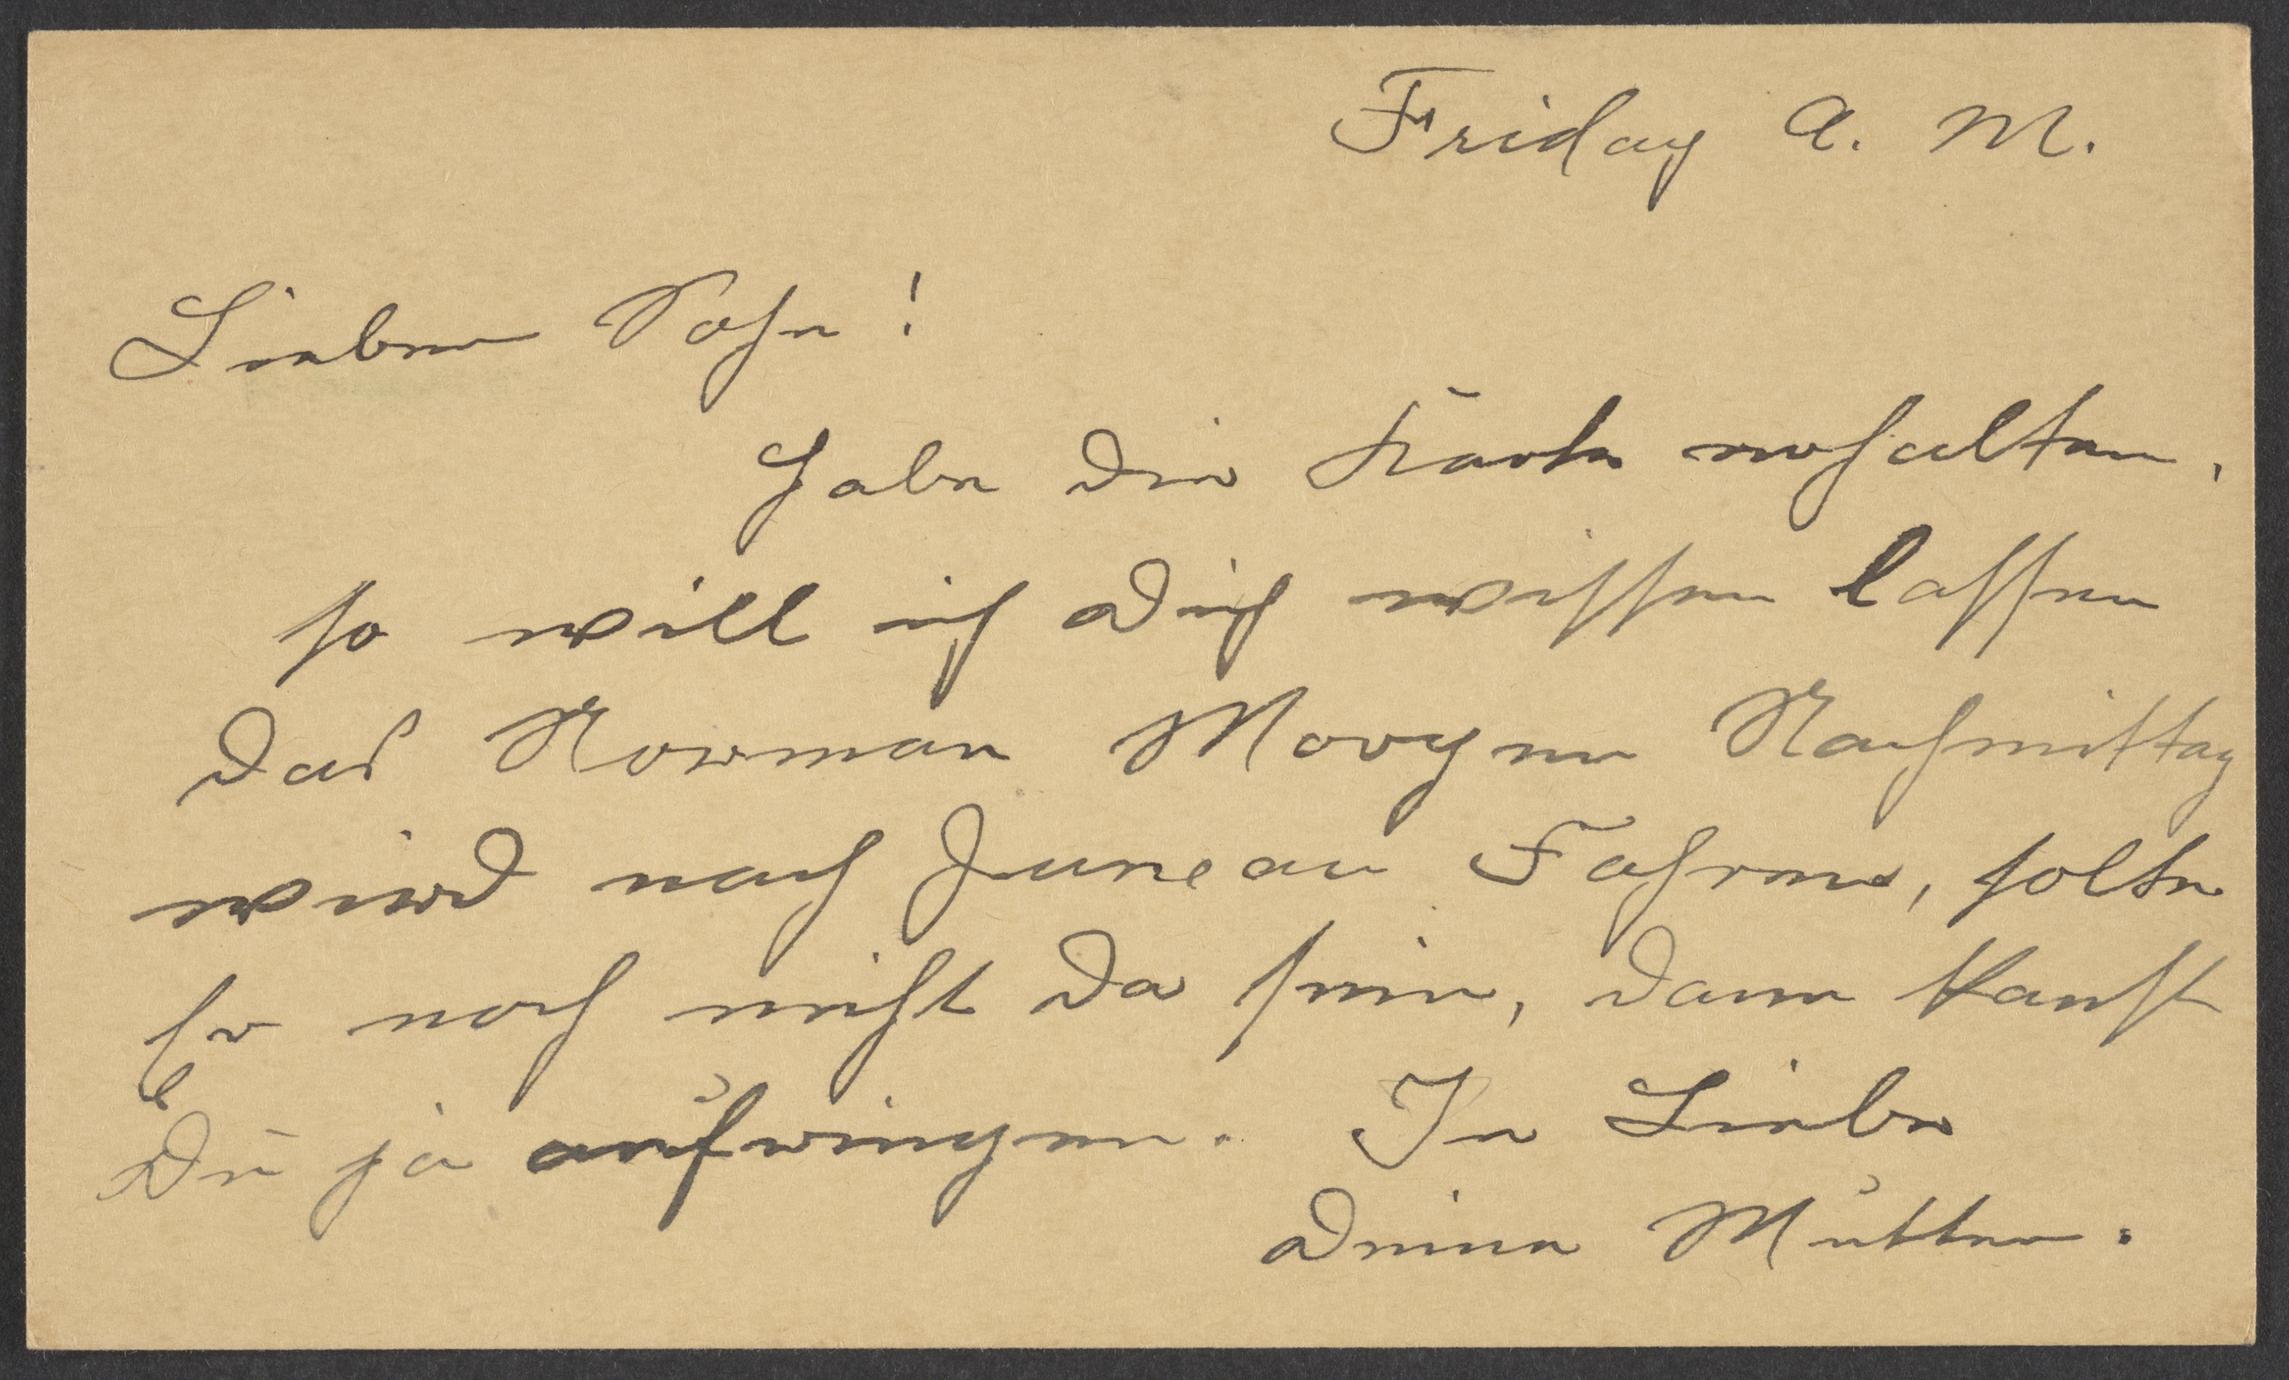 Friday A. M.
Lieber Sohn!
Habe die Karte erhalten,
so will ich Dich wissen lassen
das Norman Morgen Nachmittag
wird nach Juneau Fahren, solte
Er noch nicht da sein, dann kanst
Du ja aufringen. In Liebe
Deine Mutter.